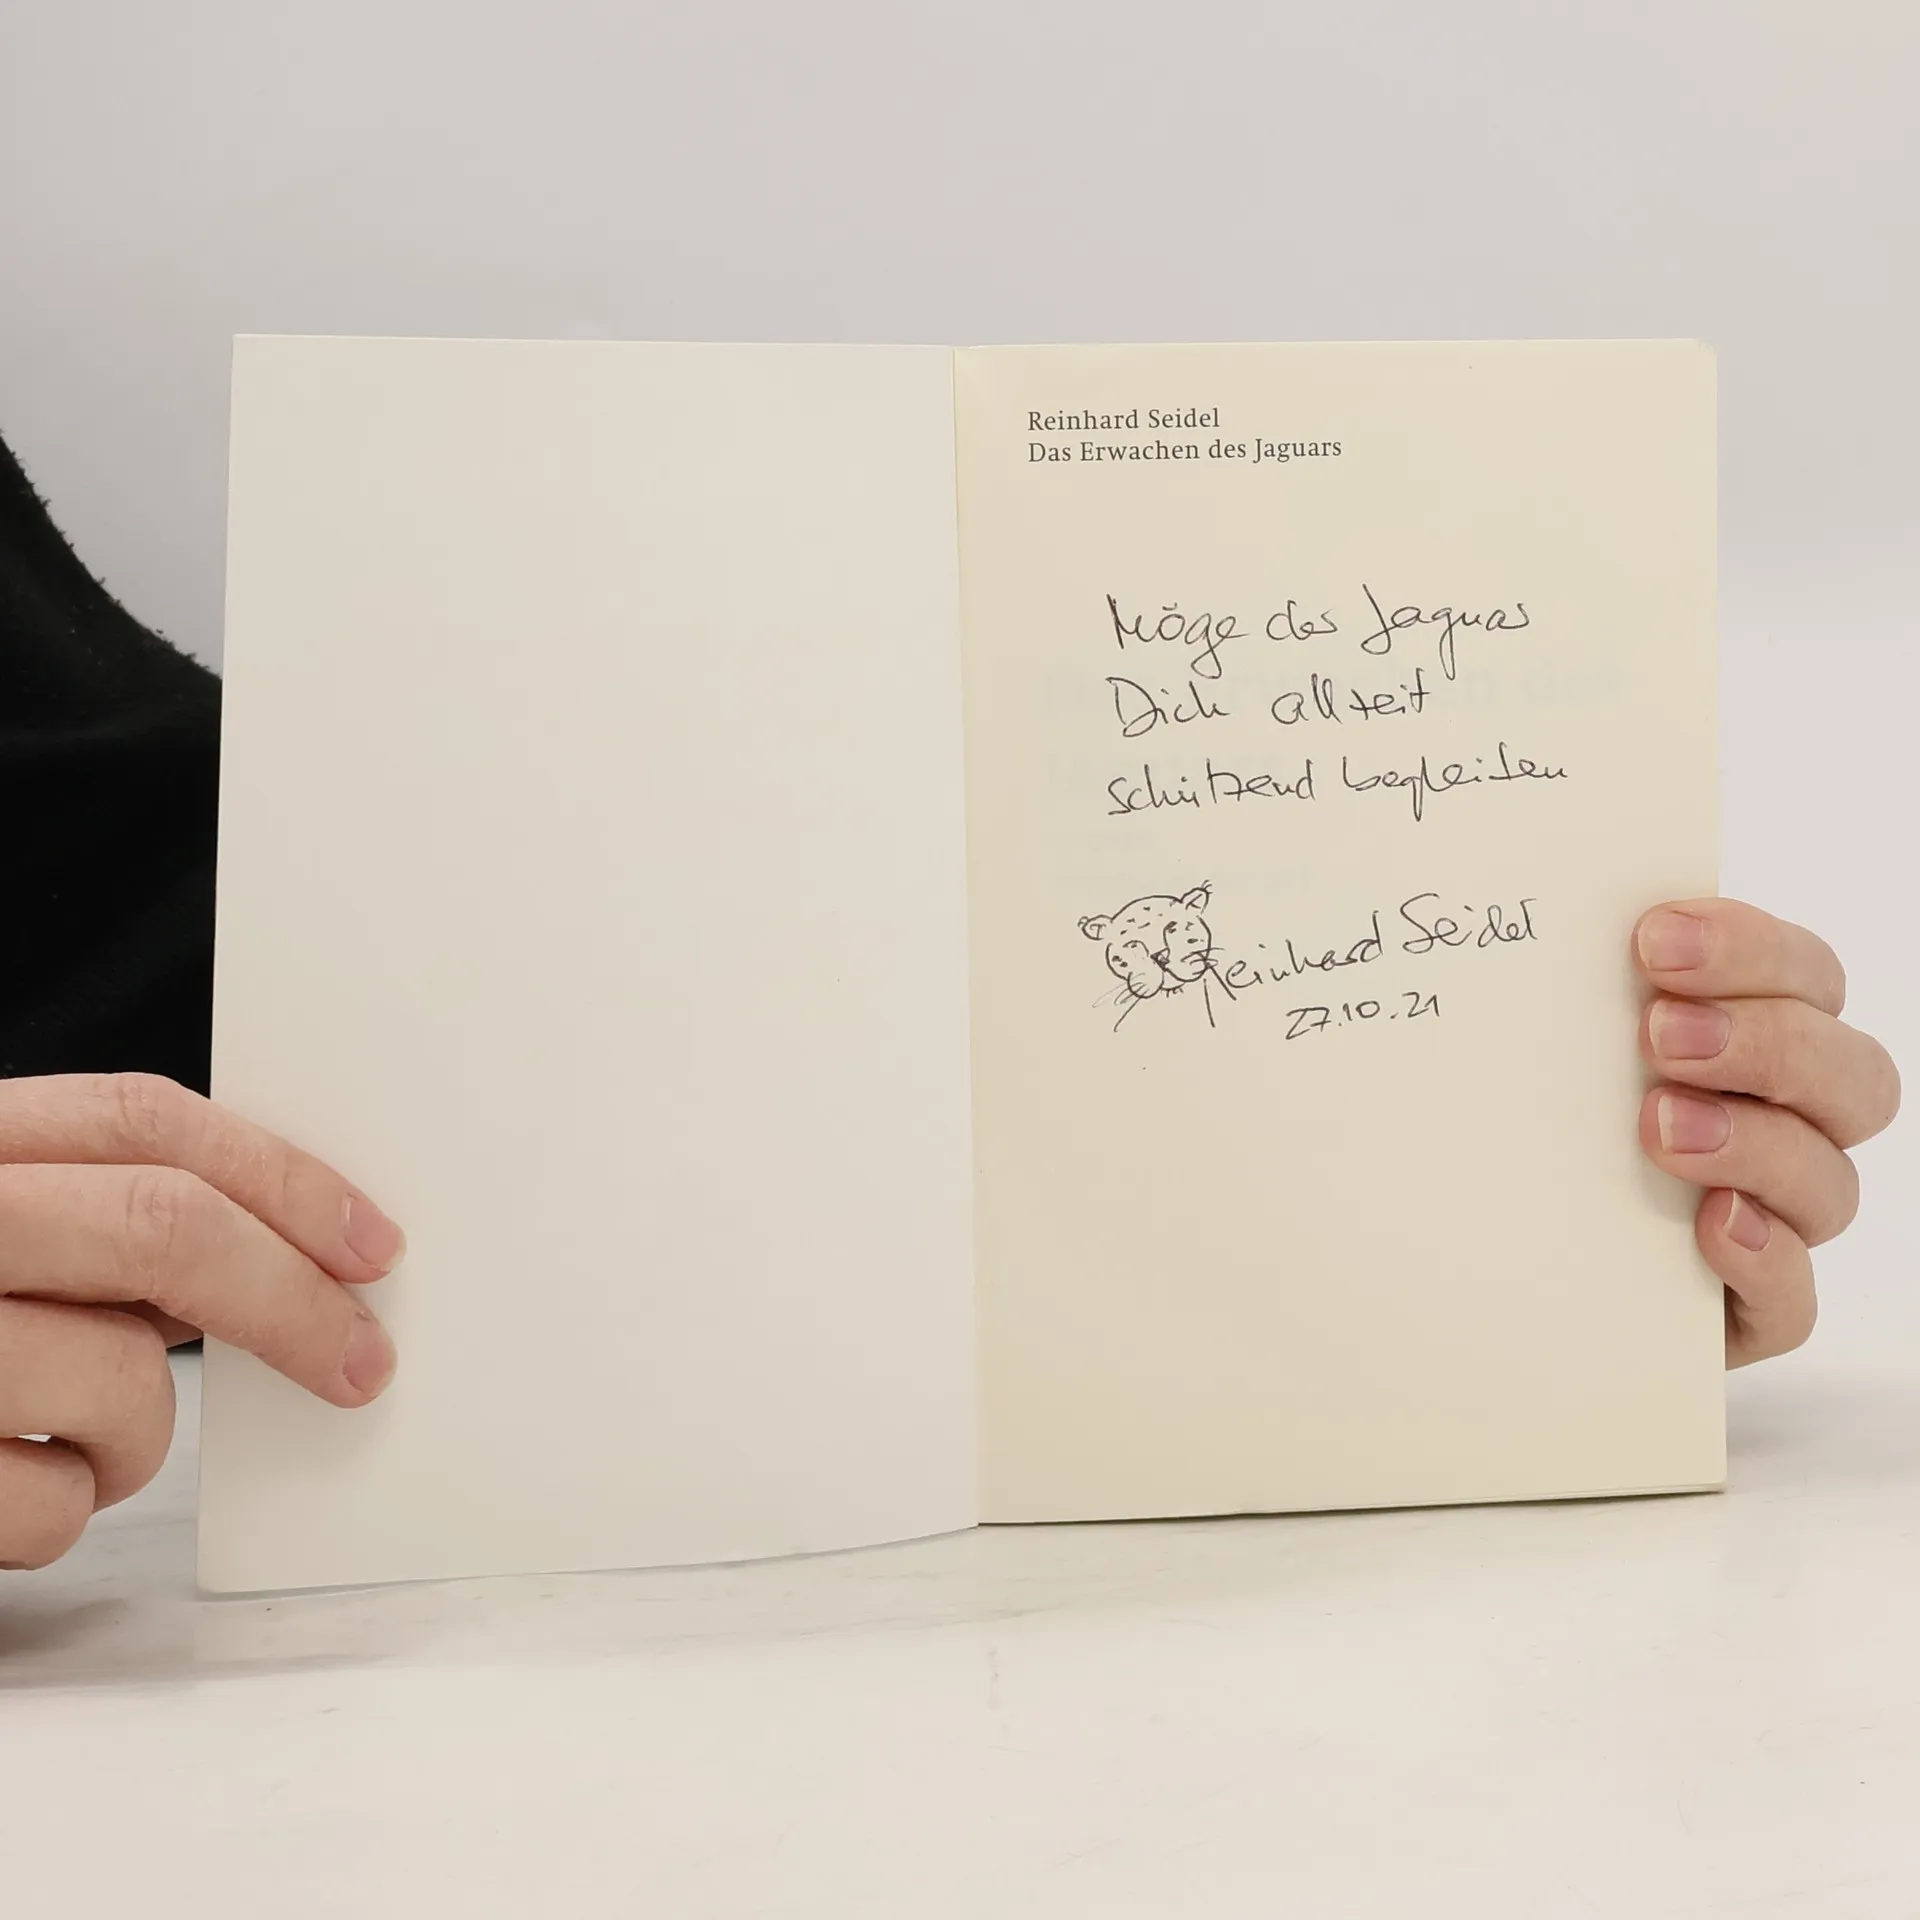 Reinhard Seidel
Das Erwachen des Jaguars
Möge der Jaguar
Dich allzeit
schützend begleiten
Reinhard Seidel
27.10.21